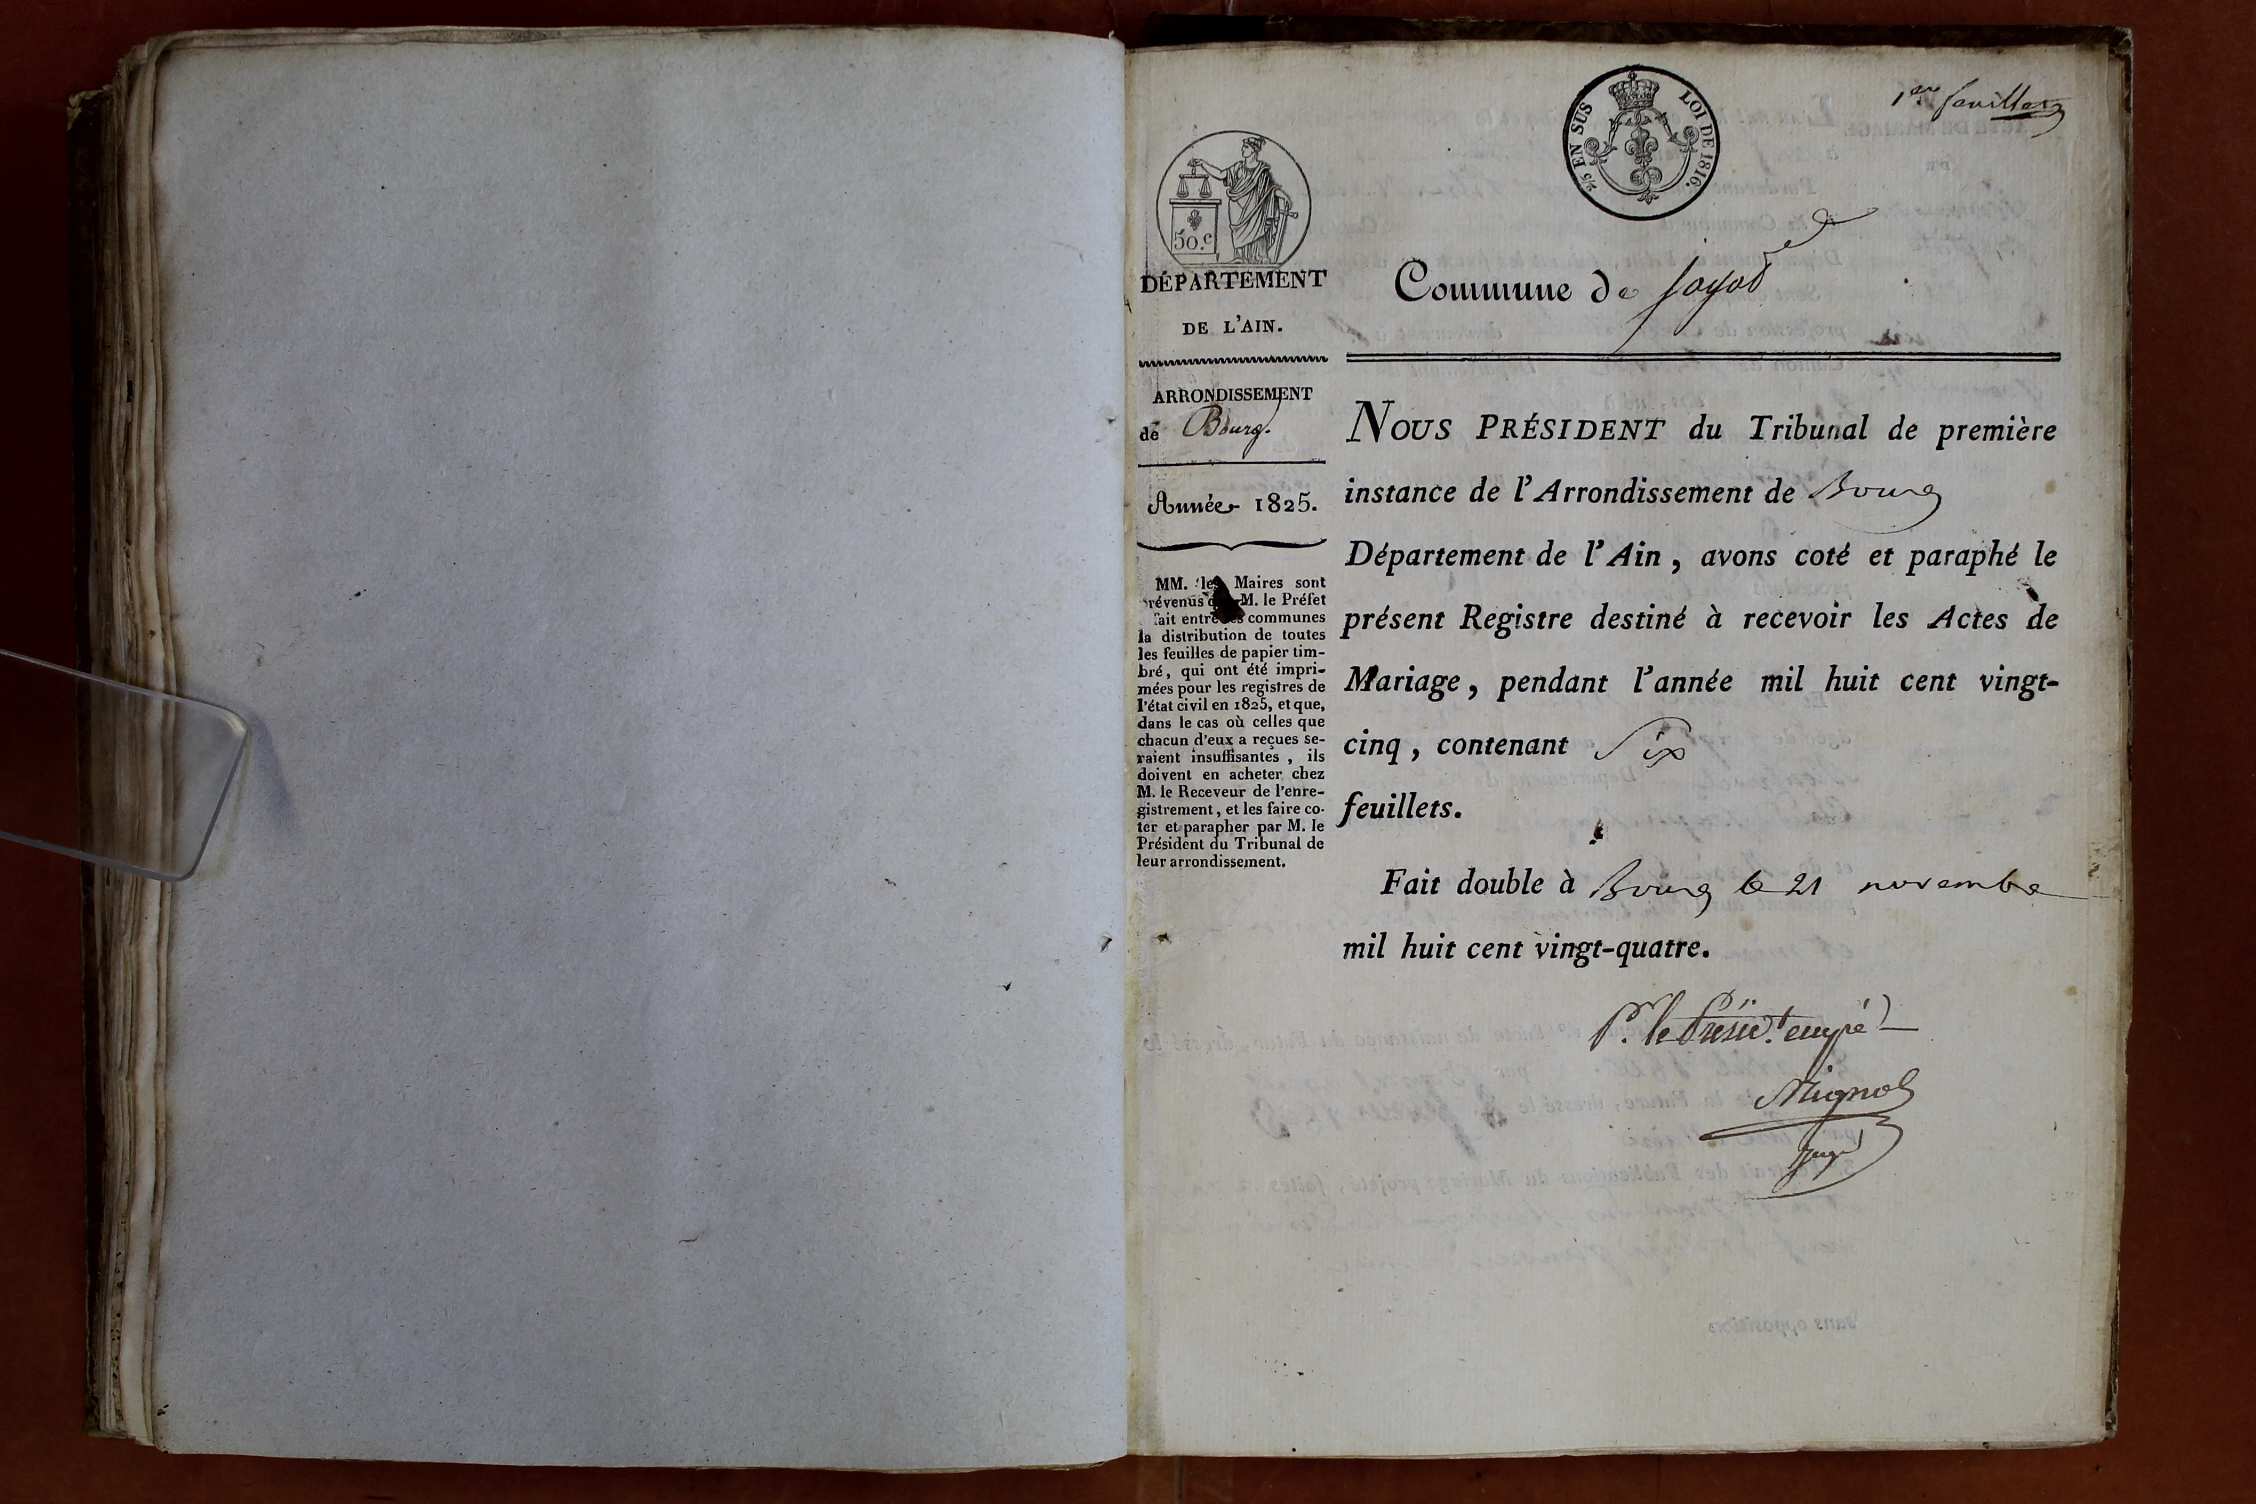 1er feuillet
2/5 EN SUS LOI DE 1816.
50.c
DÉPARTEMENT
DE L'AIN.
ARRONDISSEMENT
de Bourg.
Année 1825.
MM. les Maires sont
prévenus que M. le Préfet
fait entre les communes
la distribution de toutes
les feuilles de papier tim-
bré, qui ont été impri-
mées pour les registres de
l'état civil en 1825, et que,
dans le cas où celles que
chacun d'eux a reçues se-
raient insuffisantes, ils
doivent en acheter chez
M. le Receveur de l'enre-
gistrement, et les faire co-
ter et parapher par M. le
Président du Tribunal de
leur arrondissement.
Commune de Jayat
NOUS PRÉSIDENT du Tribunal de première
instance de l'Arrondissement de Bourg
Département de l'Ain, avons coté et paraphé le
présent Registre destiné à recevoir les Actes de
Mariage, pendant l'année mil huit cent vingt-
cinq, contenant Six
feuillets.
Fait double à Bourg le 21 novembre
mil huit cent vingt-quatre.
Pr. le Présid.t empé
Mignot
Juge
sans opposition